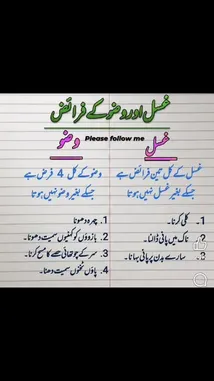 غسل اور وضو کے فرائض
غسل
Please follow me
وضو
غسل کے کل تین فرائض ہے
جسکے بغیر غسل نہیں ہوتا
1. کلی کرنا۔
2. ناک میں پانی ڈالنا۔
3. سارے بدن پر پانی بہانا۔
وضو کے کل 4 فرض ہے
جسکے بغیر وضو نہیں ہوتا
1. چہرہ دھونا
2. بازوؤں کو کہنیوں سمیت دھونا۔
3. سر کے چوتھائی حصے کا مسح کرنا۔
4. پاؤں ٹخنوں سمیت دھنا۔